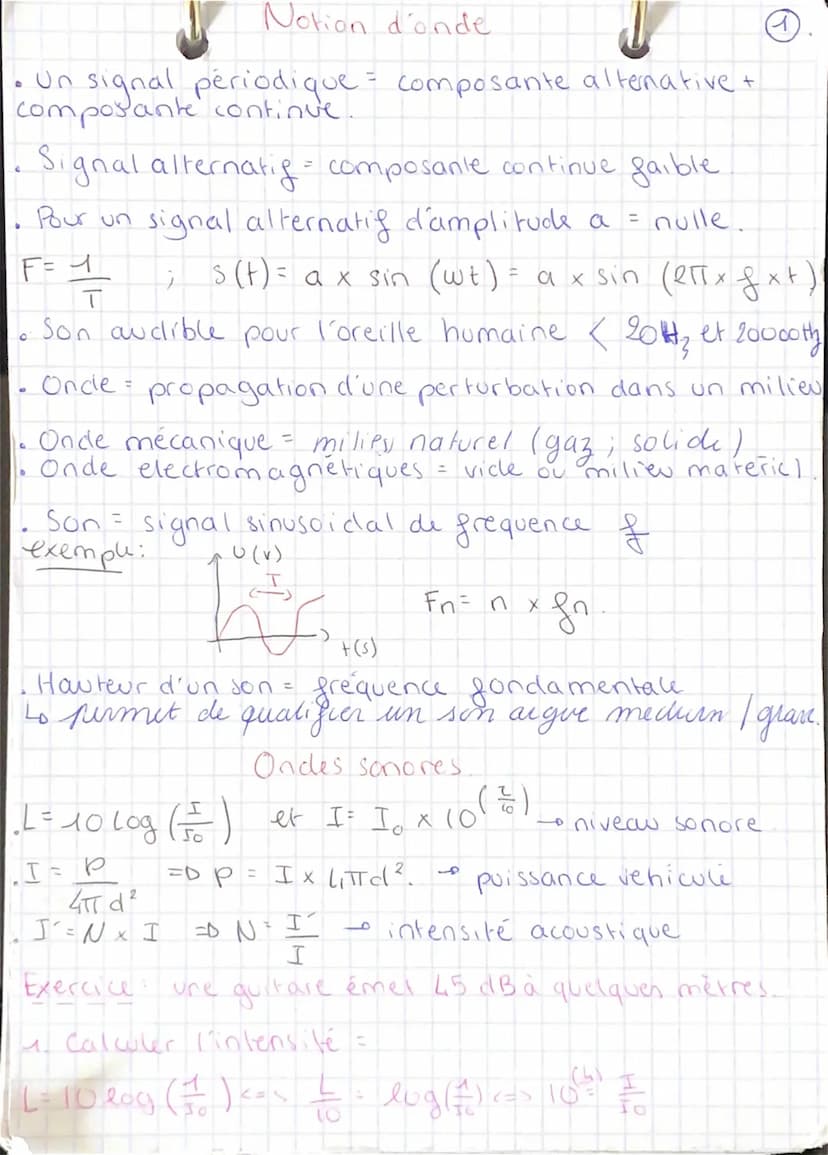 Notion d'onde
1
. Un signal périodique = composante alternative +
composante continue.
. Signal alternatif = composante continue faible
. Pour un signal alternatif d'amplitude a = nulle.
F = 1/T ; s(t) = a x sin (wt) = a x sin (2π x f x t)
. Son audible pour l'oreille humaine < 20Hz et 20000Hz
. Onde = propagation d'une perturbation dans un milieu
. Onde mécanique = milieu naturel (gaz ; solide)
. Onde electromagnétiques = vide ou milieu materiel.
. Son = signal sinusoidal de frequence f
exemple :
U(v)
T
t(s)
Fn = n x fn.
. Hauteur d'un son = fréquence fondamentale
↳ permet de qualifier un son aigue medium / grave.
Ondes sonores
. L = 10 log (I/I₀) et I = I₀ x 10^(L/10) → niveau sonore
. I = P/4πd² => P = I x 4πd². → puissance vehiculé
. I' = N x I => N = I'/I → intensité acoustique
Exercice : une guitare émet 45 dB à quelques mètres.
1. Calculer l'intensité =
L = 10 log (1/I₀) <=> L/10 = log(1/I₀) <=> 10 = I/I₀